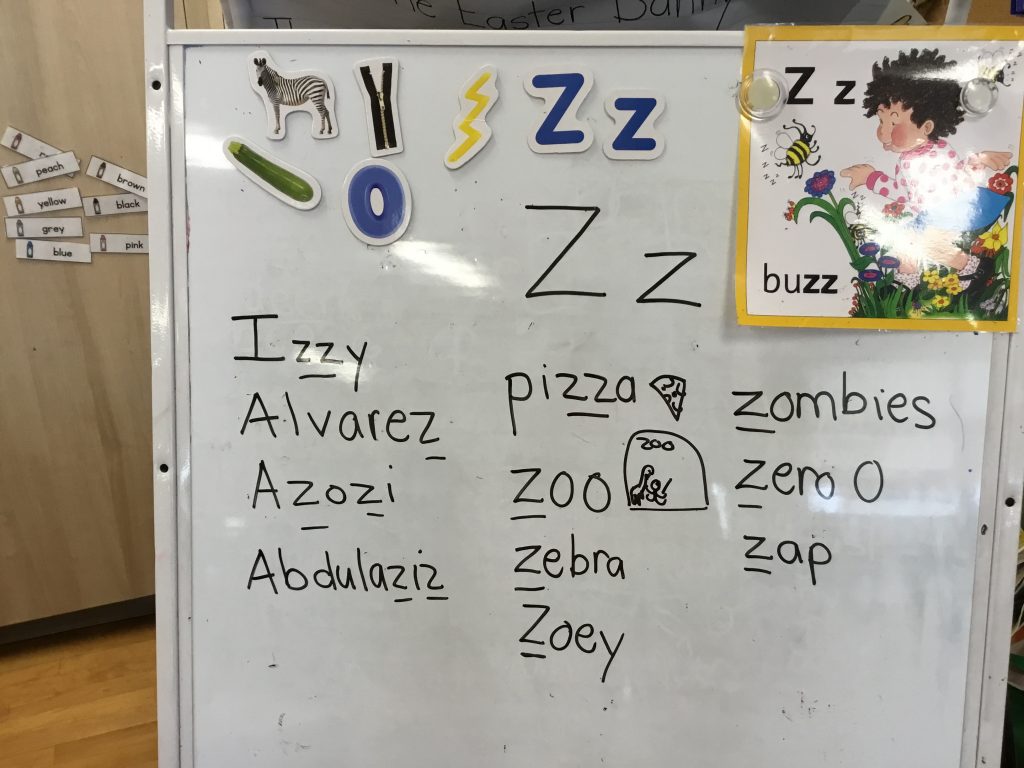 The Easter Bunny
peach
brown
yellow
black
grey
blue
pink
Z z
0
Z z
buzz
Z z
Izzy
Alvarez
Azozi
Abdulaziz
pizza
zoo
zoo
zebra
Zoey
zombies
zero 0
zap